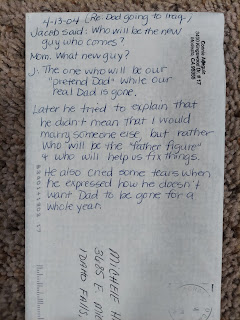 4-13-04 (Re: Dad going to Iraq)
Jacob said: Who will be the new
guy who comes?
Mom: What new guy?
J: The one who will be our
"pretend Dad" while our
real Dad is gone.
Later he tried to explain that
he didn't mean that I would
marry someone else, but rather
who will be the "father figure"
& who will help us fix things.
He also cried some tears when
he expressed how he doesn't
want Dad to be gone for a
whole year.
MICHELE H
3685 E
IDAHO FALLS,